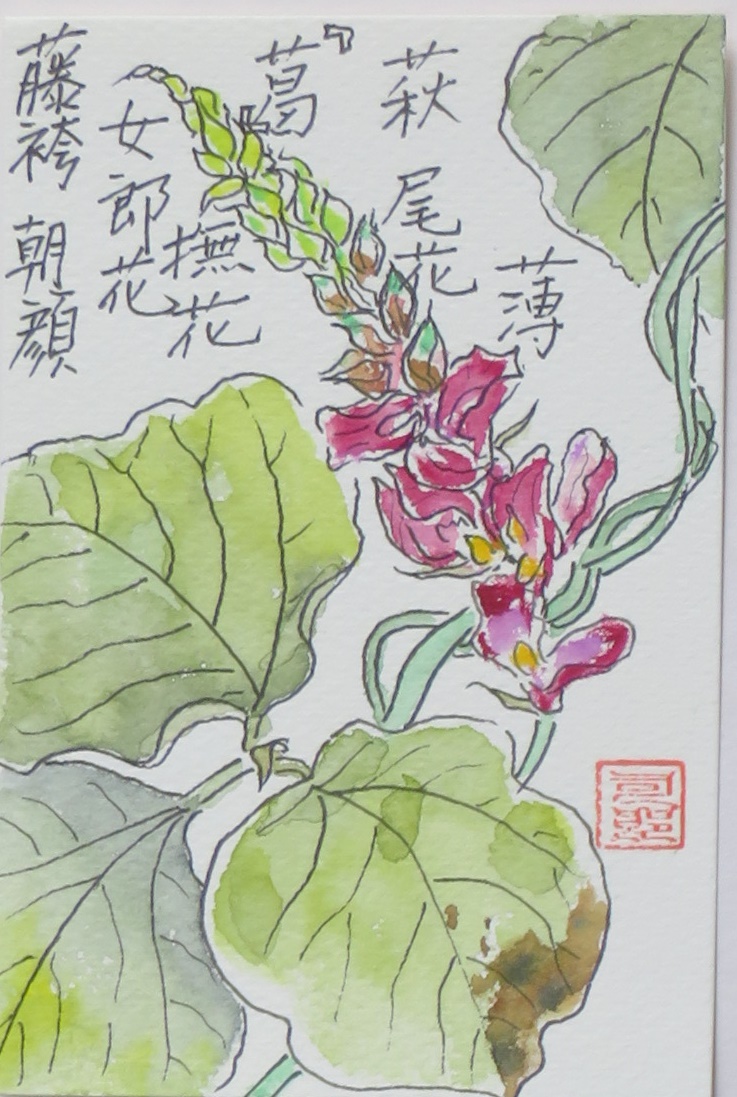 萩 尾花 薄
『葛』
撫花
女郎花
藤袴 朝顔